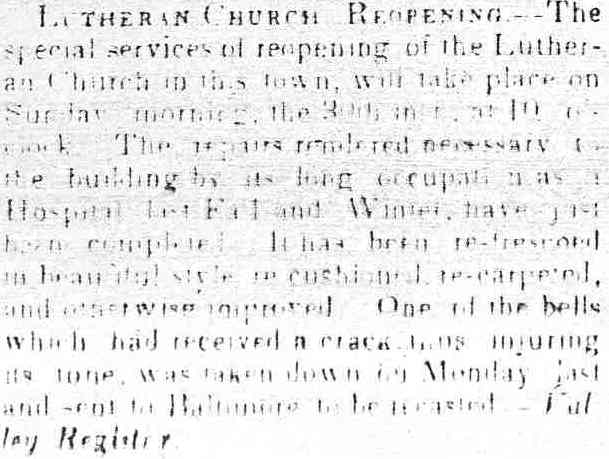 LUTHERAN CHURCH REOPENING.--The
special services of reopening of the Luther-
an Church in this town, will take place on
Sunday morning, the 30th inst., at 10 o'-
clock. The repairs rendered necessary to
the building by its long occupation as a
Hospital last Fall and Winter, have just
been completed. It has been re-frescoed
in beautiful style, re cushioned, re-carpeted,
and otherwise improved. One of the bells
which had received a crack thus injuring
its tone, was taken down on Monday last
and sent to Baltimore to be recasted.--Val
ley Register.